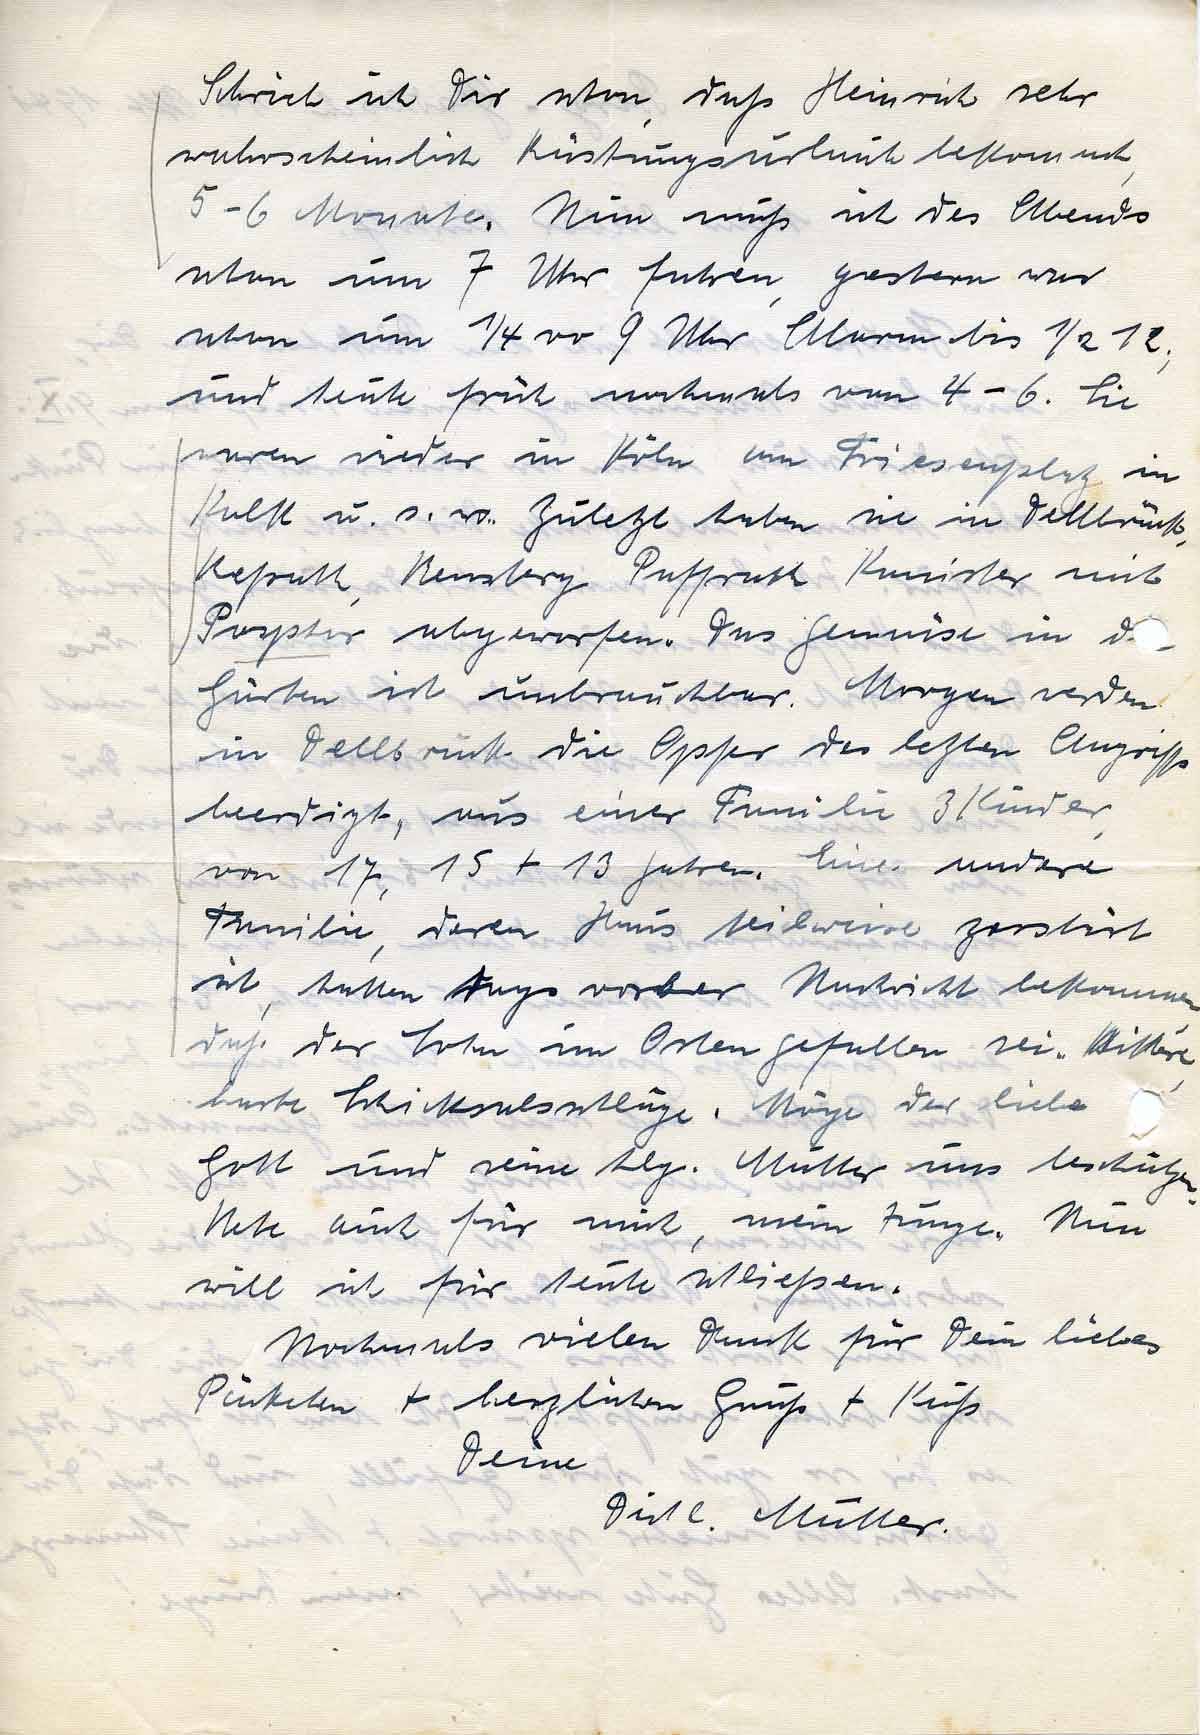 Schrieb ich Dir schon, daß Heinrich sehr
wahrscheinlich Rüstungsurlaub bekommt,
5-6 Monate. Nun muß ich des Abends
schon um 7 Uhr fahren, gestern war
schon um 1/4 vor 9 Uhr Alarm bis 1/2 12,
und heute früh nochmals von 4-6. Sie
waren wieder in Köln am Friesenplatz in
Kalk u. s. w. Zuletzt haben sie in Dellbrück,
Refrath, Bensberg Paffrath Kanister mit
Phosphor abgeworfen. Das Gemüse in den
Gärten ist unbrauchbar. Morgen werden
in Dellbrück die Opfer des letzten Angriffs
beerdigt, aus einer Familie 3 Kinder,
von 17, 15 + 13 Jahren. Eine andere
Familie, deren Haus teilweise zerstört
ist, hatten tags vorher Nachricht bekommen
daß der Sohn im Osten gefallen sei. Bittere,
harte Schicksalsschläge. Möge der liebe
Gott und seine hlg. Mutter uns beschützen.
Bete auch für mich, mein Junge. Nun
will ich für heute schließen.
Nochmals vielen Dank für Dein liebes
Päckchen + herzlichen Gruß + Kuß
Deine
Dich l. Mutter.